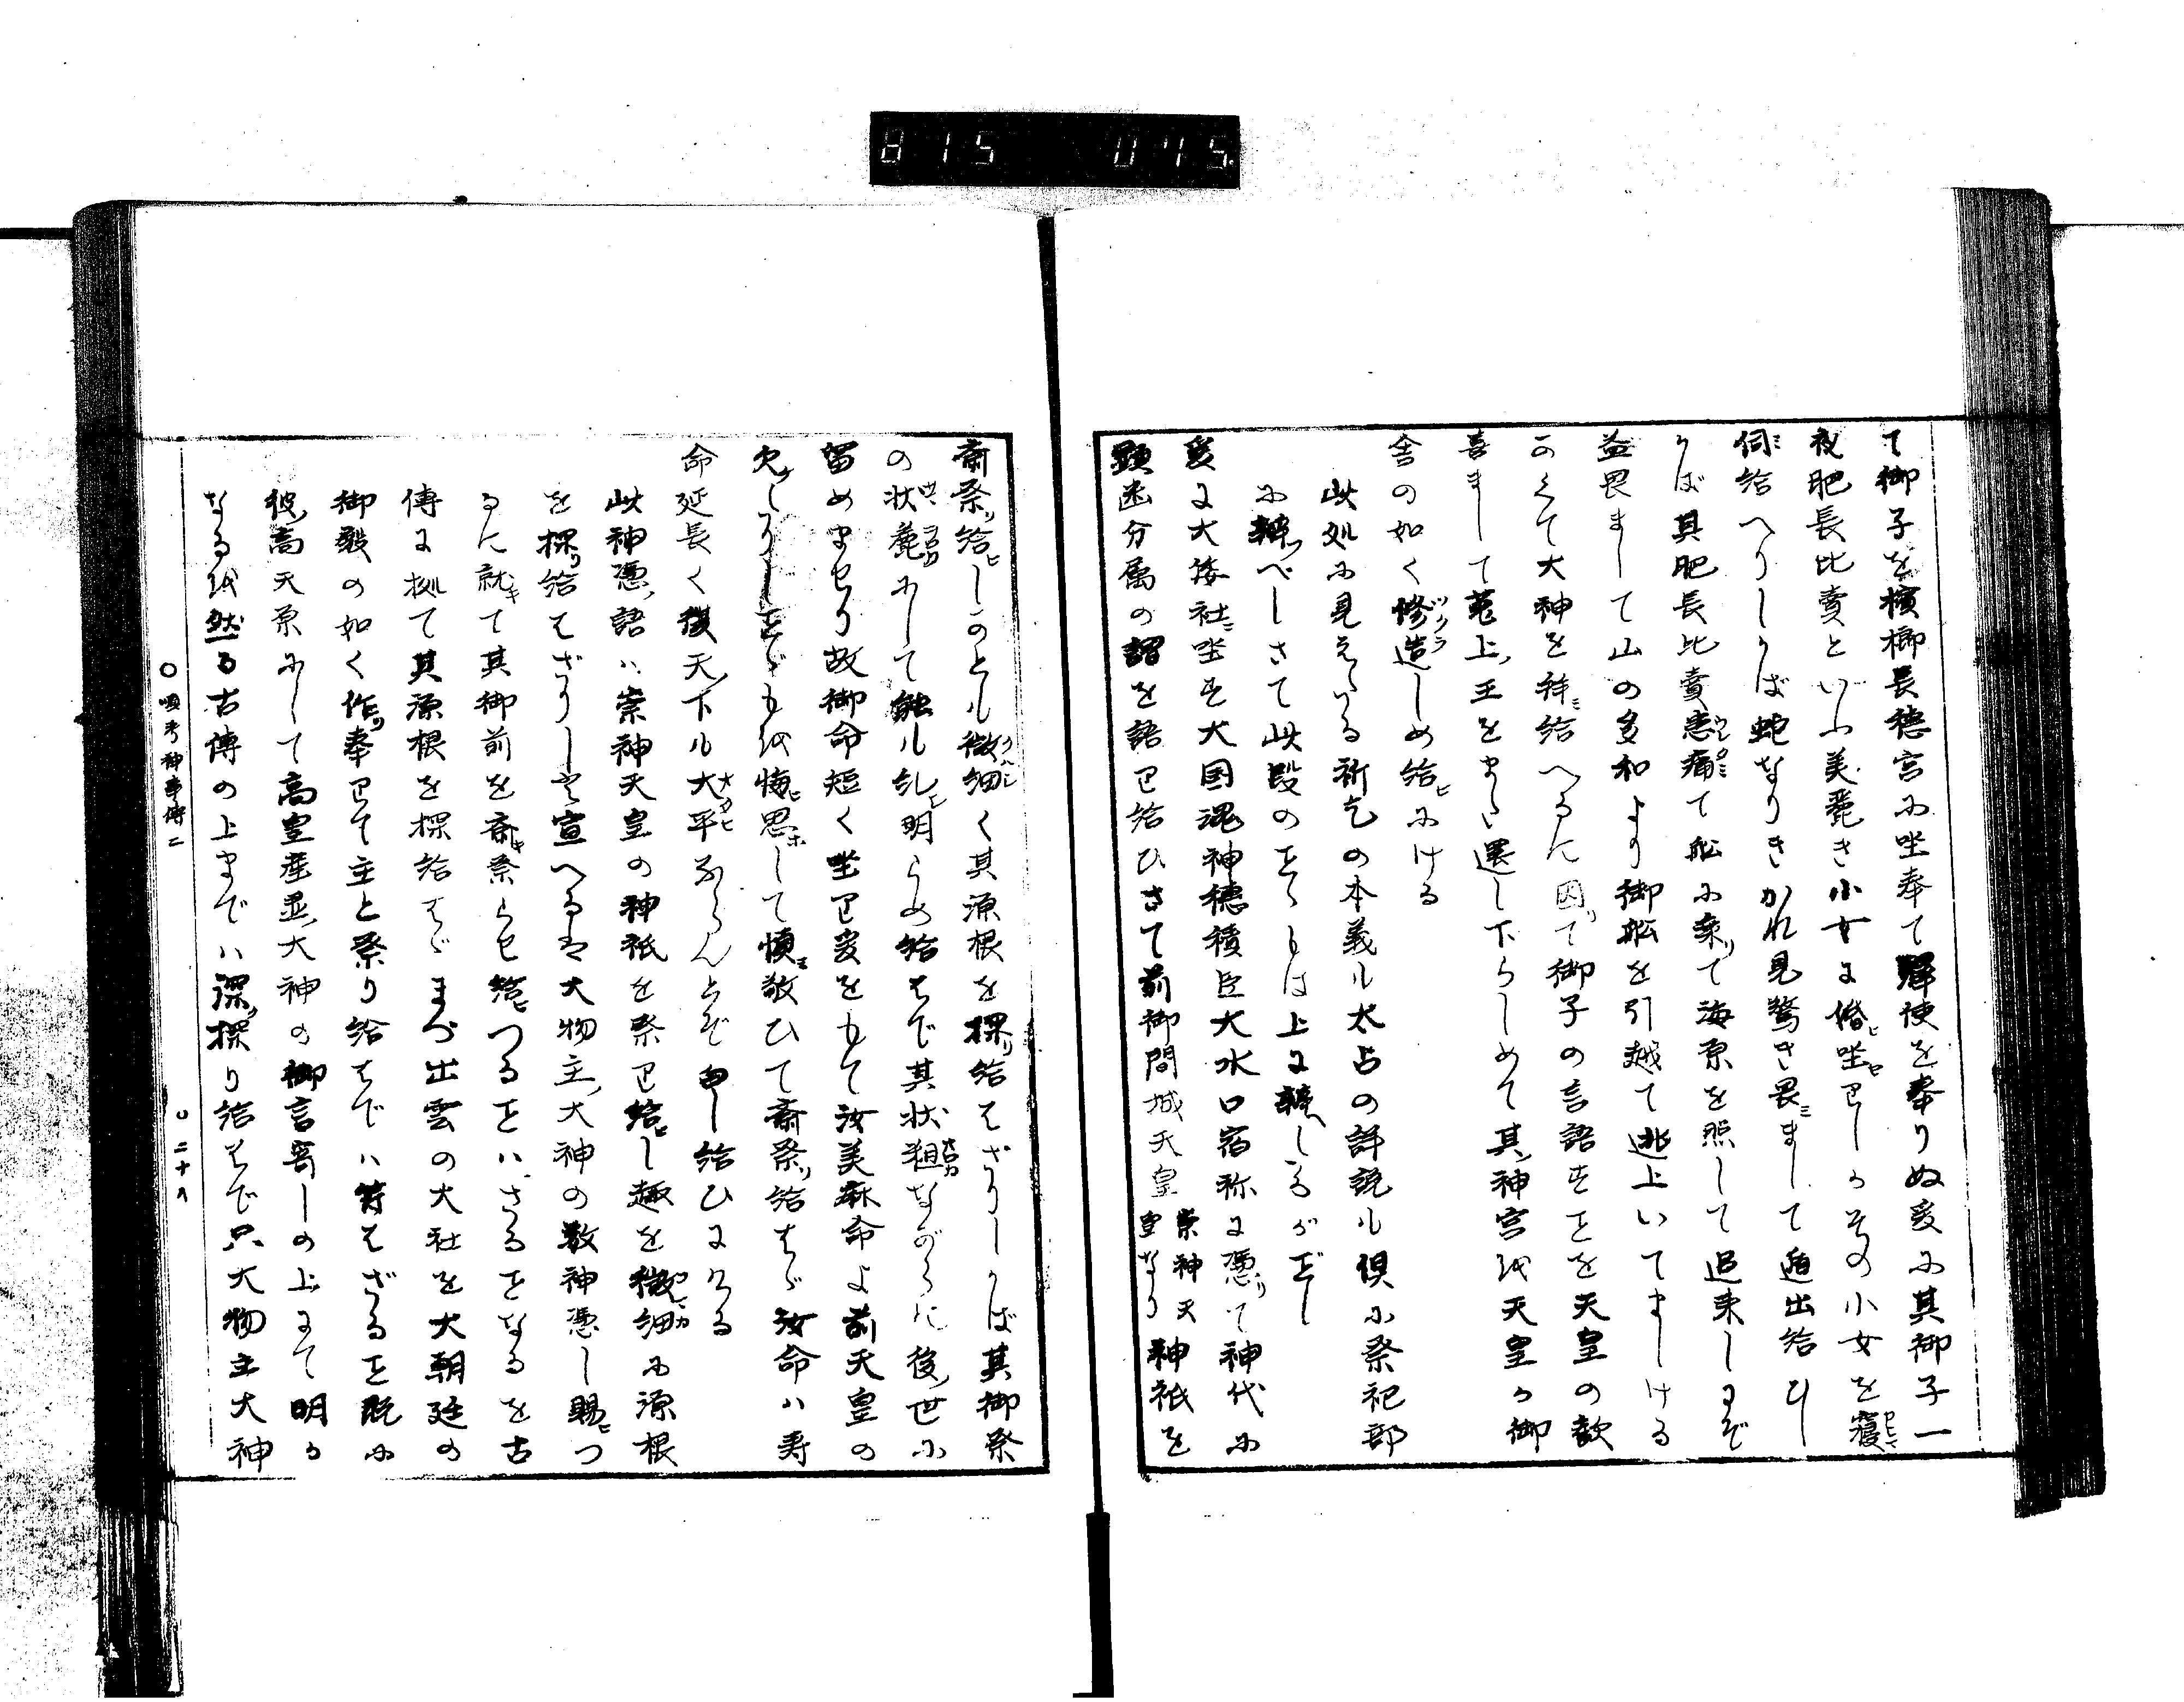 815 075.
て御子を檳榔長穂宮に坐奉て驛使を奉りぬ爰に其御子一
夜肥長比賣といふ美麗き小女に婚ヒ坐セりしかその小女を窺
伺ミ給へりしかば蛇なりきかれ見驚き畏ミまして遁出給ひし
かば其肥長比賣患痛て船に乗リて海原を照して追来しまぞ
益畏まして山の多和より御船を引越て逃上いてましける
かくて大神を拝ミ給へるに因て御子の言語すことを天皇の歓
喜まして菟上ノ王をまた還し下らしめて其ノ神宮を天皇の御
舎の如く修造ツクラしめ給ヒにける
此処に見えたる祈乞の本義ル太占の詳説ル倶に祭祀部
に辨ツべしさて此段のことゝもは上に辨へしるがごとし
爰に大倭社ニ坐す大国魂神穂積臣大水口宿祢に憑リて神代に
顕幽分属の謂を語り給ひさて前御間城天皇 崇神天皇なり 神祇を
斎祭リ給ヒしかとル微細クハシく其源根を探リ給はざりしかば其御祭
の状麁にして触ル乱ヒ明らめ給はで其状粗ながらに後ノ世に
留めませり故御命短く坐り爰をもて汝美麻命よ前天皇の
欠しりしことゞもを悔ヒ思ホして慎ミ敬ひて斎祭リ給はゞ汝命ハ寿
命延長く復天ノ下ル大平ならんとぞ申し給ひにける
此神憑ノ語ハ崇神天皇の神祇を祭り給ヒし趣を微細に源根
を探リ給はざりしと宣へるは大物主ノ大神の教神憑し賜ヒつ
るに就キて其御前を斎キ祭らせ給ヒつることハさることなるを古
傳に拠て其源根を探給はゞまづ出雲の大社を大朝廷の
御殿の如く作リ奉りて主と祭り給はでハ符はざること既に
彼ノ高天原にして高皇産霊ノ大神の御言寄しの上にて明か
なるを然る古傳の上までハ深ク探り給はで只大物主大神
〇嗔考神事傳二 〇二十八